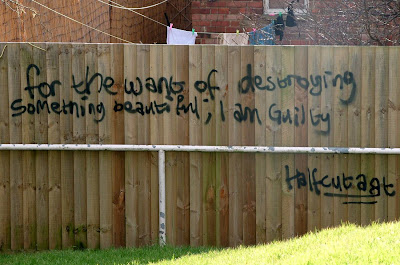 for the want of destroying
Something beautiful; I am Guilty
Halfcutagt